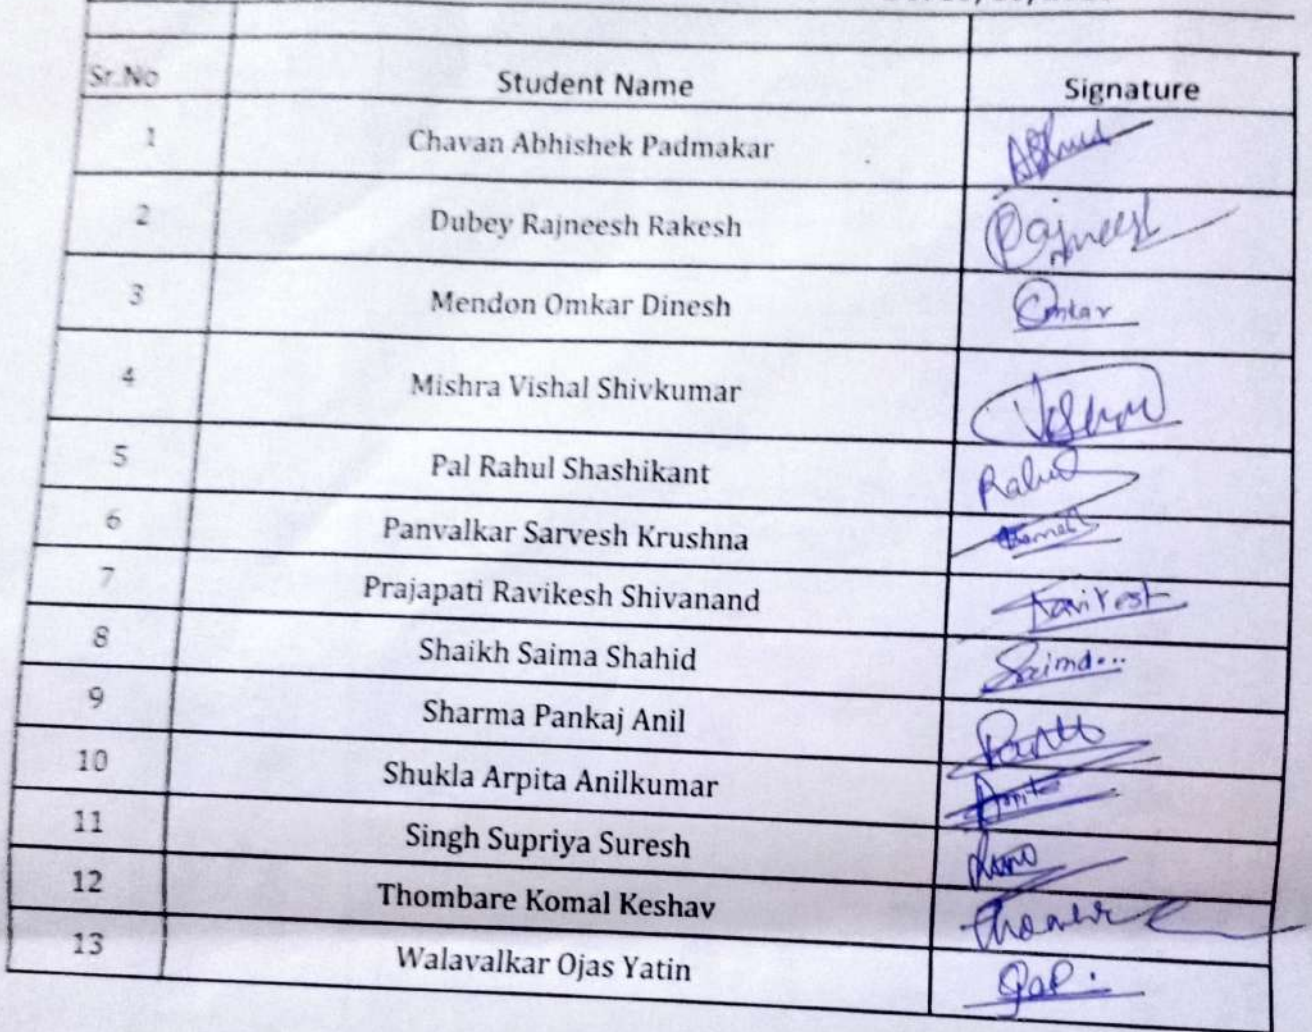 Sr.No Student Name Signature
1 Chavan Abhishek Padmakar
2 Dubey Rajneesh Rakesh Rajneesh
3 Mendon Omkar Dinesh Omkar
4 Mishra Vishal Shivkumar
5 Pal Rahul Shashikant Rahul
6 Panvalkar Sarvesh Krushna
7 Prajapati Ravikesh Shivanand
8 Shaikh Saima Shahid Saima...
9 Sharma Pankaj Anil
10 Shukla Arpita Anilkumar
11 Singh Supriya Suresh
12 Thombare Komal Keshav
13 Walavalkar Ojas Yatin